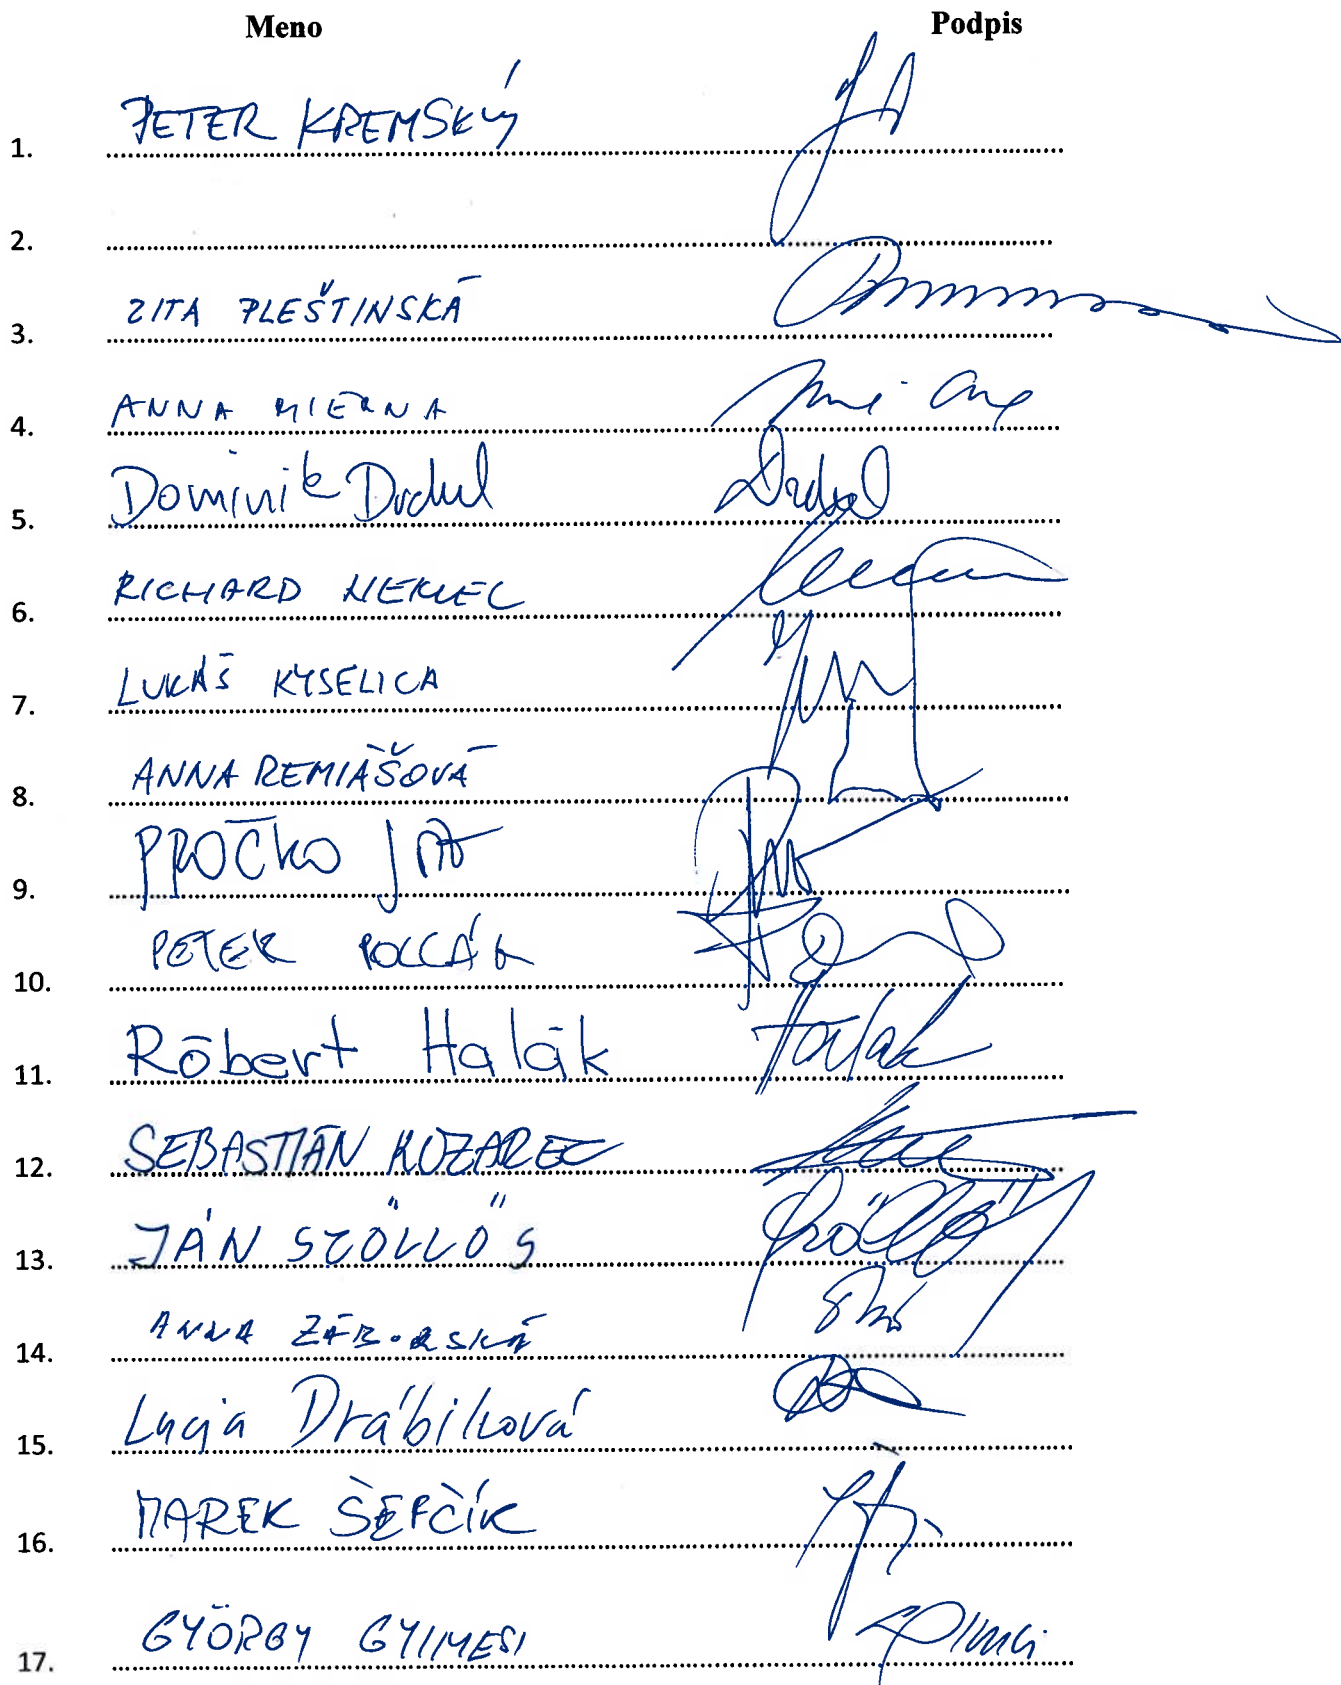 Meno Podpis
1. PETER KREMSKÝ
2.
3. ZITA PLEŠTINSKÁ
4. ANNA MIERNA
5. Dominik Drdul Drdul
6. RICHARD NEMEC
7. LUKÁŠ KYSELICA
8. ANNA REMIÁŠOVÁ
9. PROČKO
10. PETER POLLÁK
11. Róbert Halák Halák
12. SEBASTIÁN KOZAREC
13. JÁN SZŐLLŐS
14. ANNA ZÁBORSKÁ
15. Lucia Drábiková
16. MAREK ŠEFČÍK
17. GYÖRGY GYIMESI